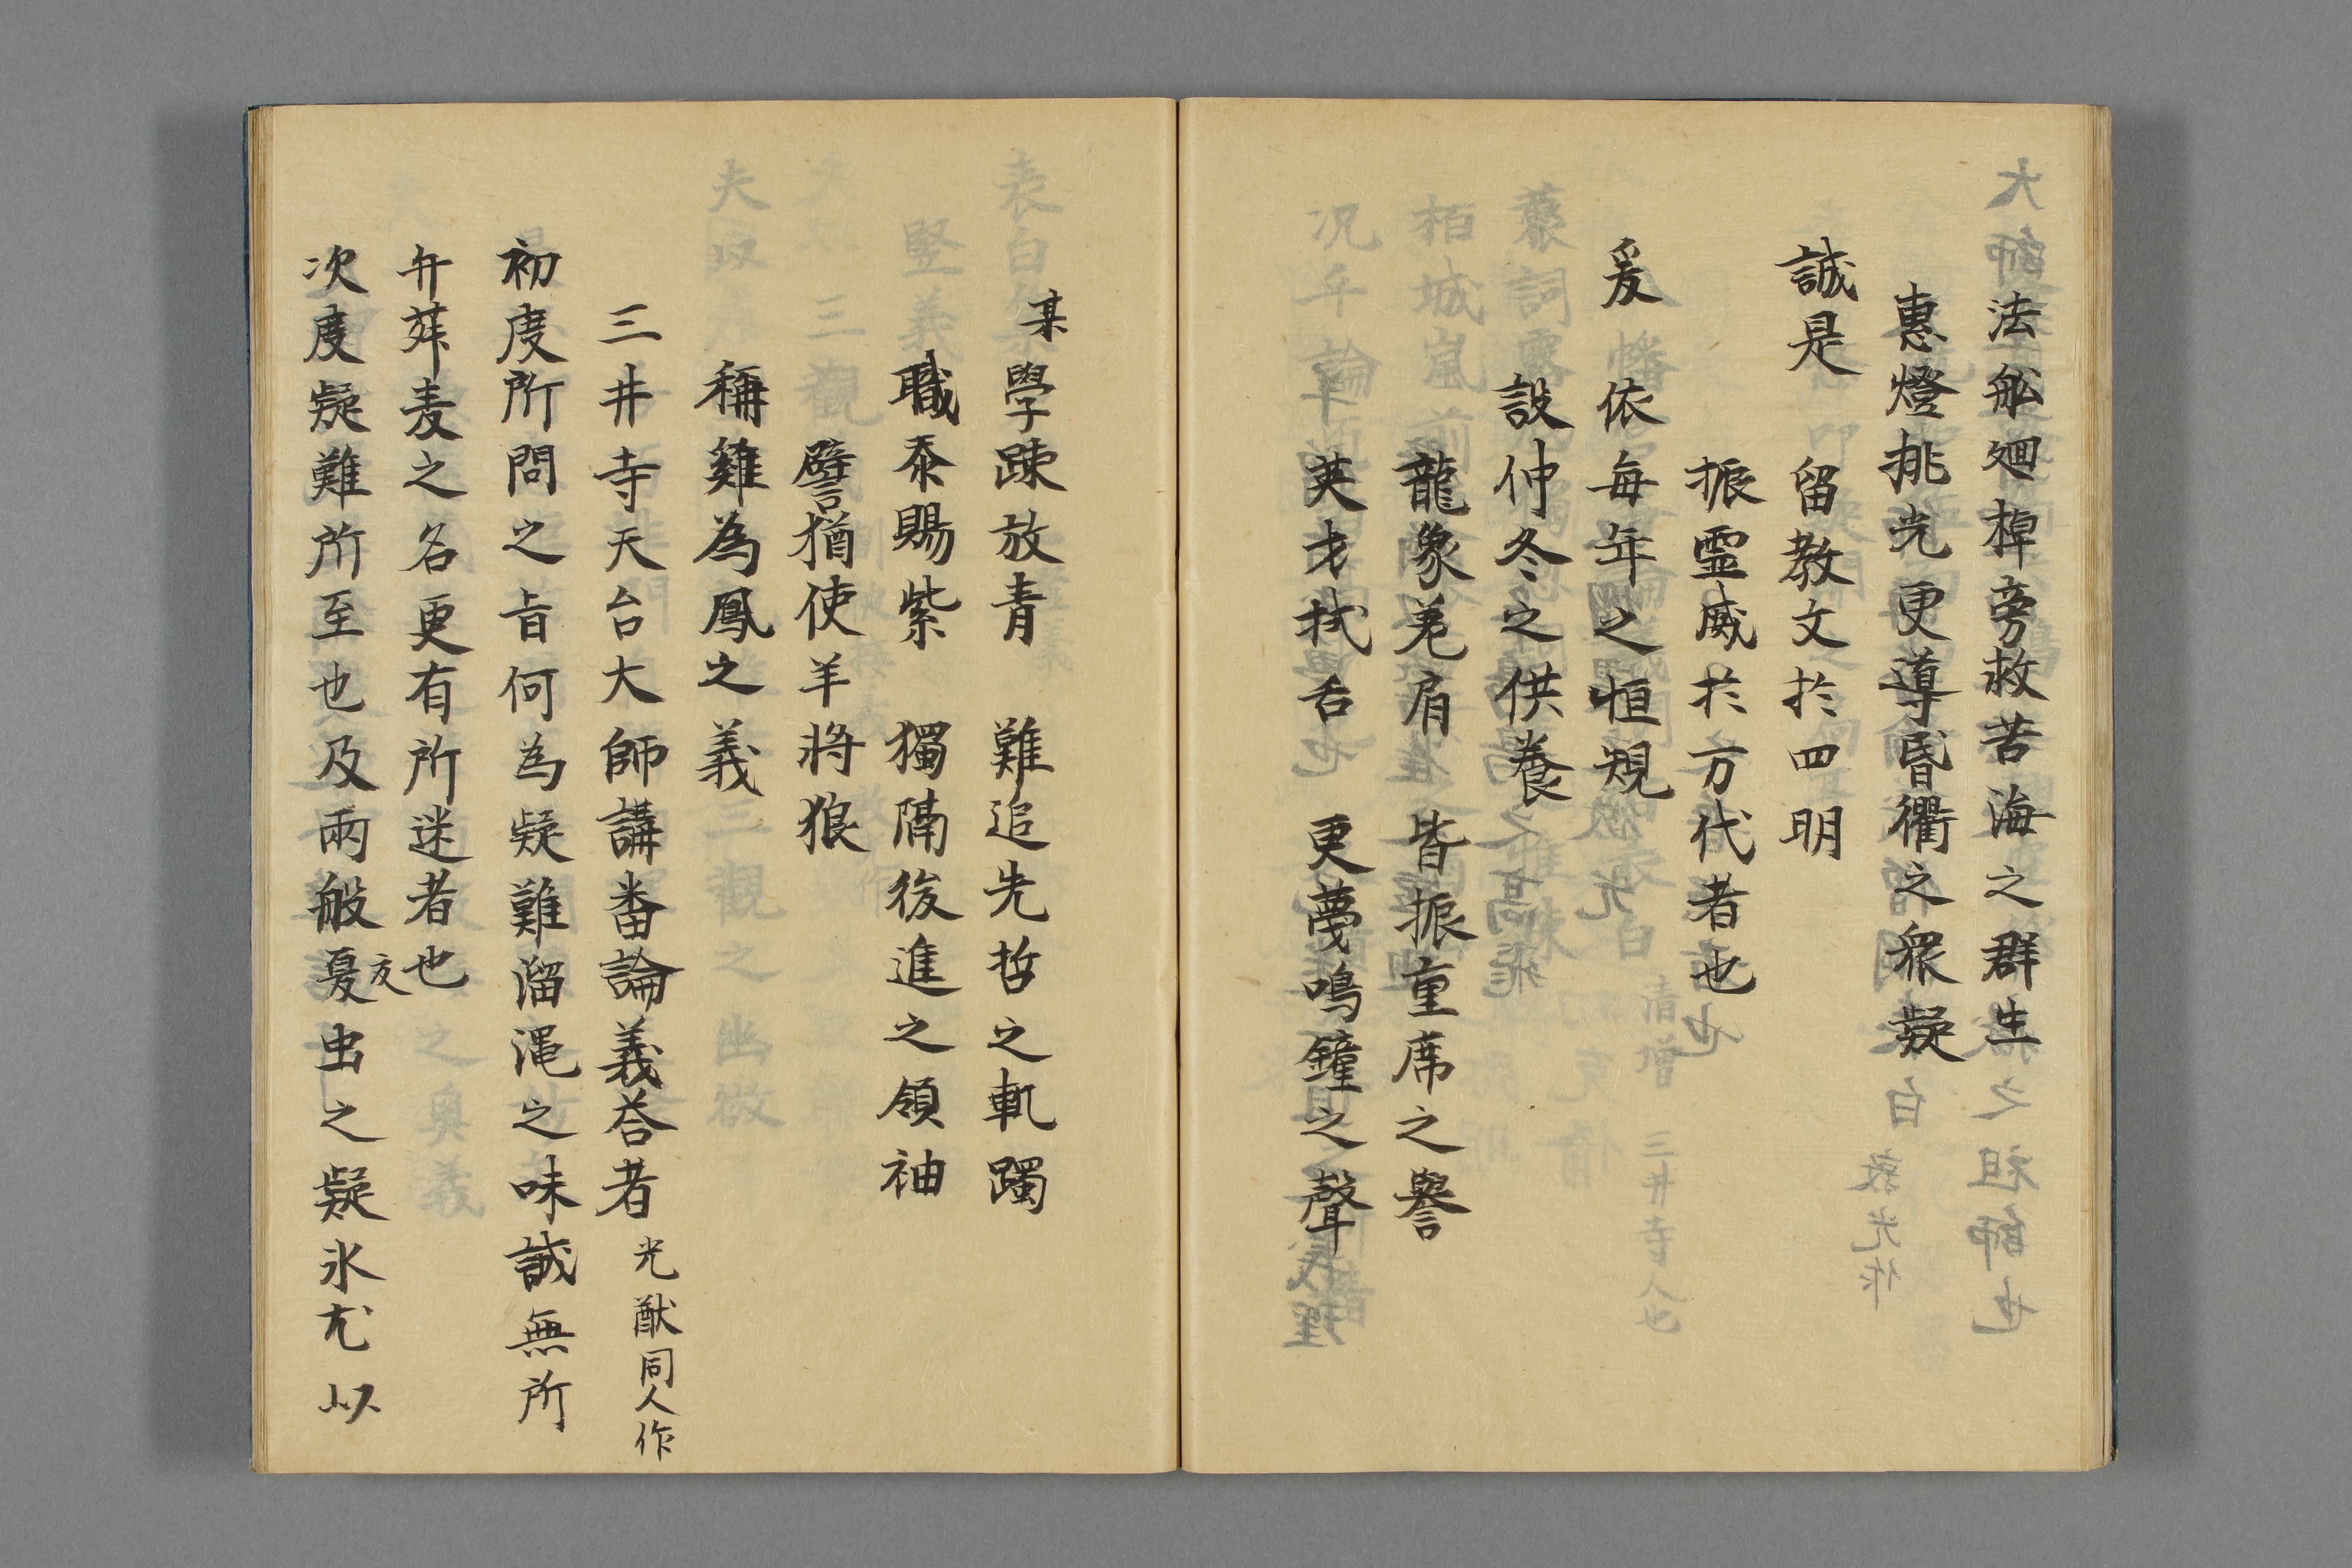 法舩廻棹旁救苦海之群生
惠燈挑光更導昏衢之衆疑
誠是　留教文於四明
振霊威於万代者也
爰　依毎年之恒規
設仲冬之供養
龍象差肩　皆振重席之譽
英才拭舌　更蔑鳴鐘之聲
某學踈放青　難追先哲之軌躅
職忝賜紫　獨隔後進之領袖
譬猶使羊将狼
稱雞為鳳之義
三井寺天台大師講番論義荅者 光猷同人作
初度所問之旨何為疑難溜澠之味誠無所
弁菽麦之名更有所迷者也
次度疑難所至也及兩般夏出之疑氷尤以
交